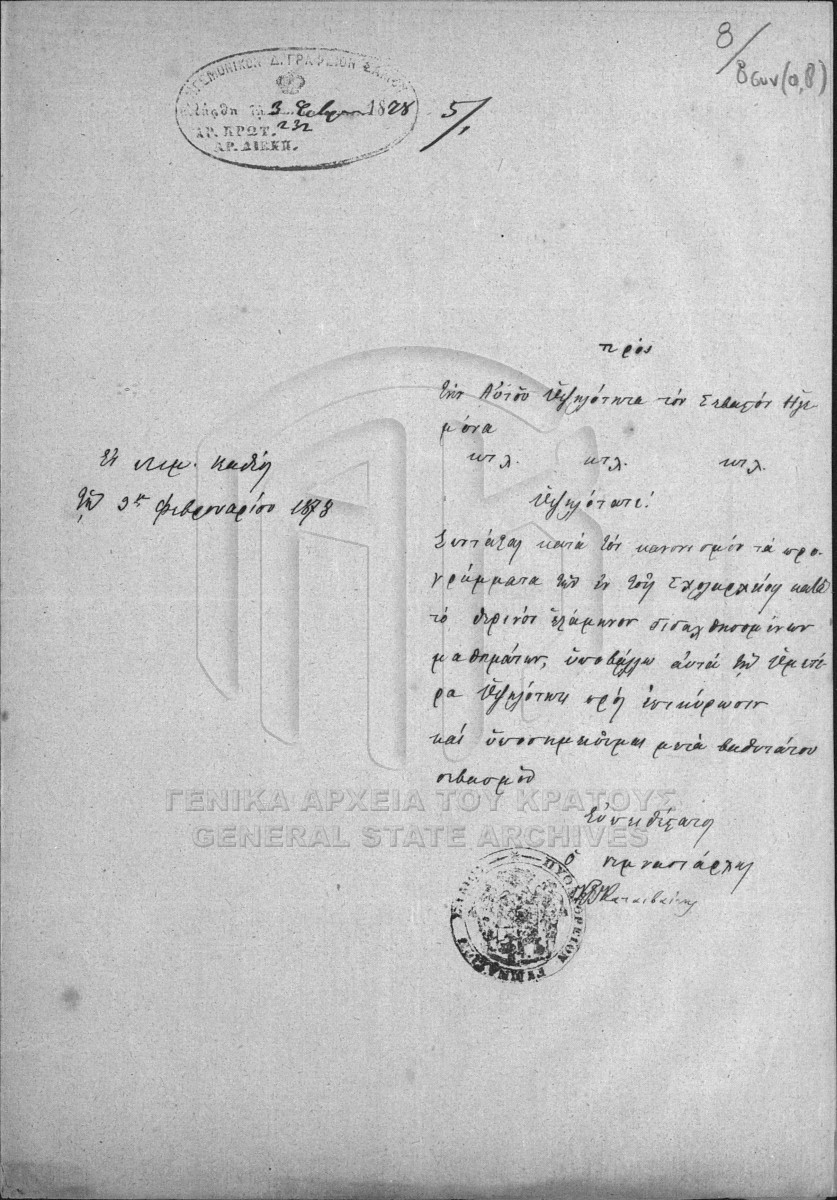 8/
8συν(0,8)
ΗΓΕΜΟΝΙΚΟΝ Δ. ΓΡΑΦΕΙΟΝ ΣΑΜΟΥ
3 1878
ΑΡ. ΠΡΩΤ. 232
ΑΡ. ΔΙΕΚΠ.
5/
πρὸς
τὴν Αὐτοῦ Ὑψηλότητα τὸν Σεβαστὸν Ἡγε
μόνα
κτλ. κτλ. κτλ.
Ἐν
τῇ Φεβρουαρίου 1878
Ὑψηλότατε!
Συντάξας κατὰ τὸν κανονισμὸν τὰ προ-
γράμματα τῶν ἐν τοῖς κατὰ
τὸ θερινὸν ἑξάμηνον διδαχθησομένων
μαθημάτων, ὑποβάλλω αὐτὰ τῇ Ὑμετέ
ρᾳ Ὑψηλότητι πρὸς ἐπικύρωσιν
καὶ ὑποσημειοῦμαι μετὰ βαθυτάτου
σεβασμοῦ
Εὐπειθέστατος
ὁ Γυμνασιάρχης
ΠΥΘΑΓΟΡΕΙΟΝ ΓΥΜΝΑΣΙΟΝ
ΓΕΝΙΚΑ ΑΡΧΕΙΑ ΤΟΥ ΚΡΑΤΟΥΣ
GENERAL STATE ARCHIVES